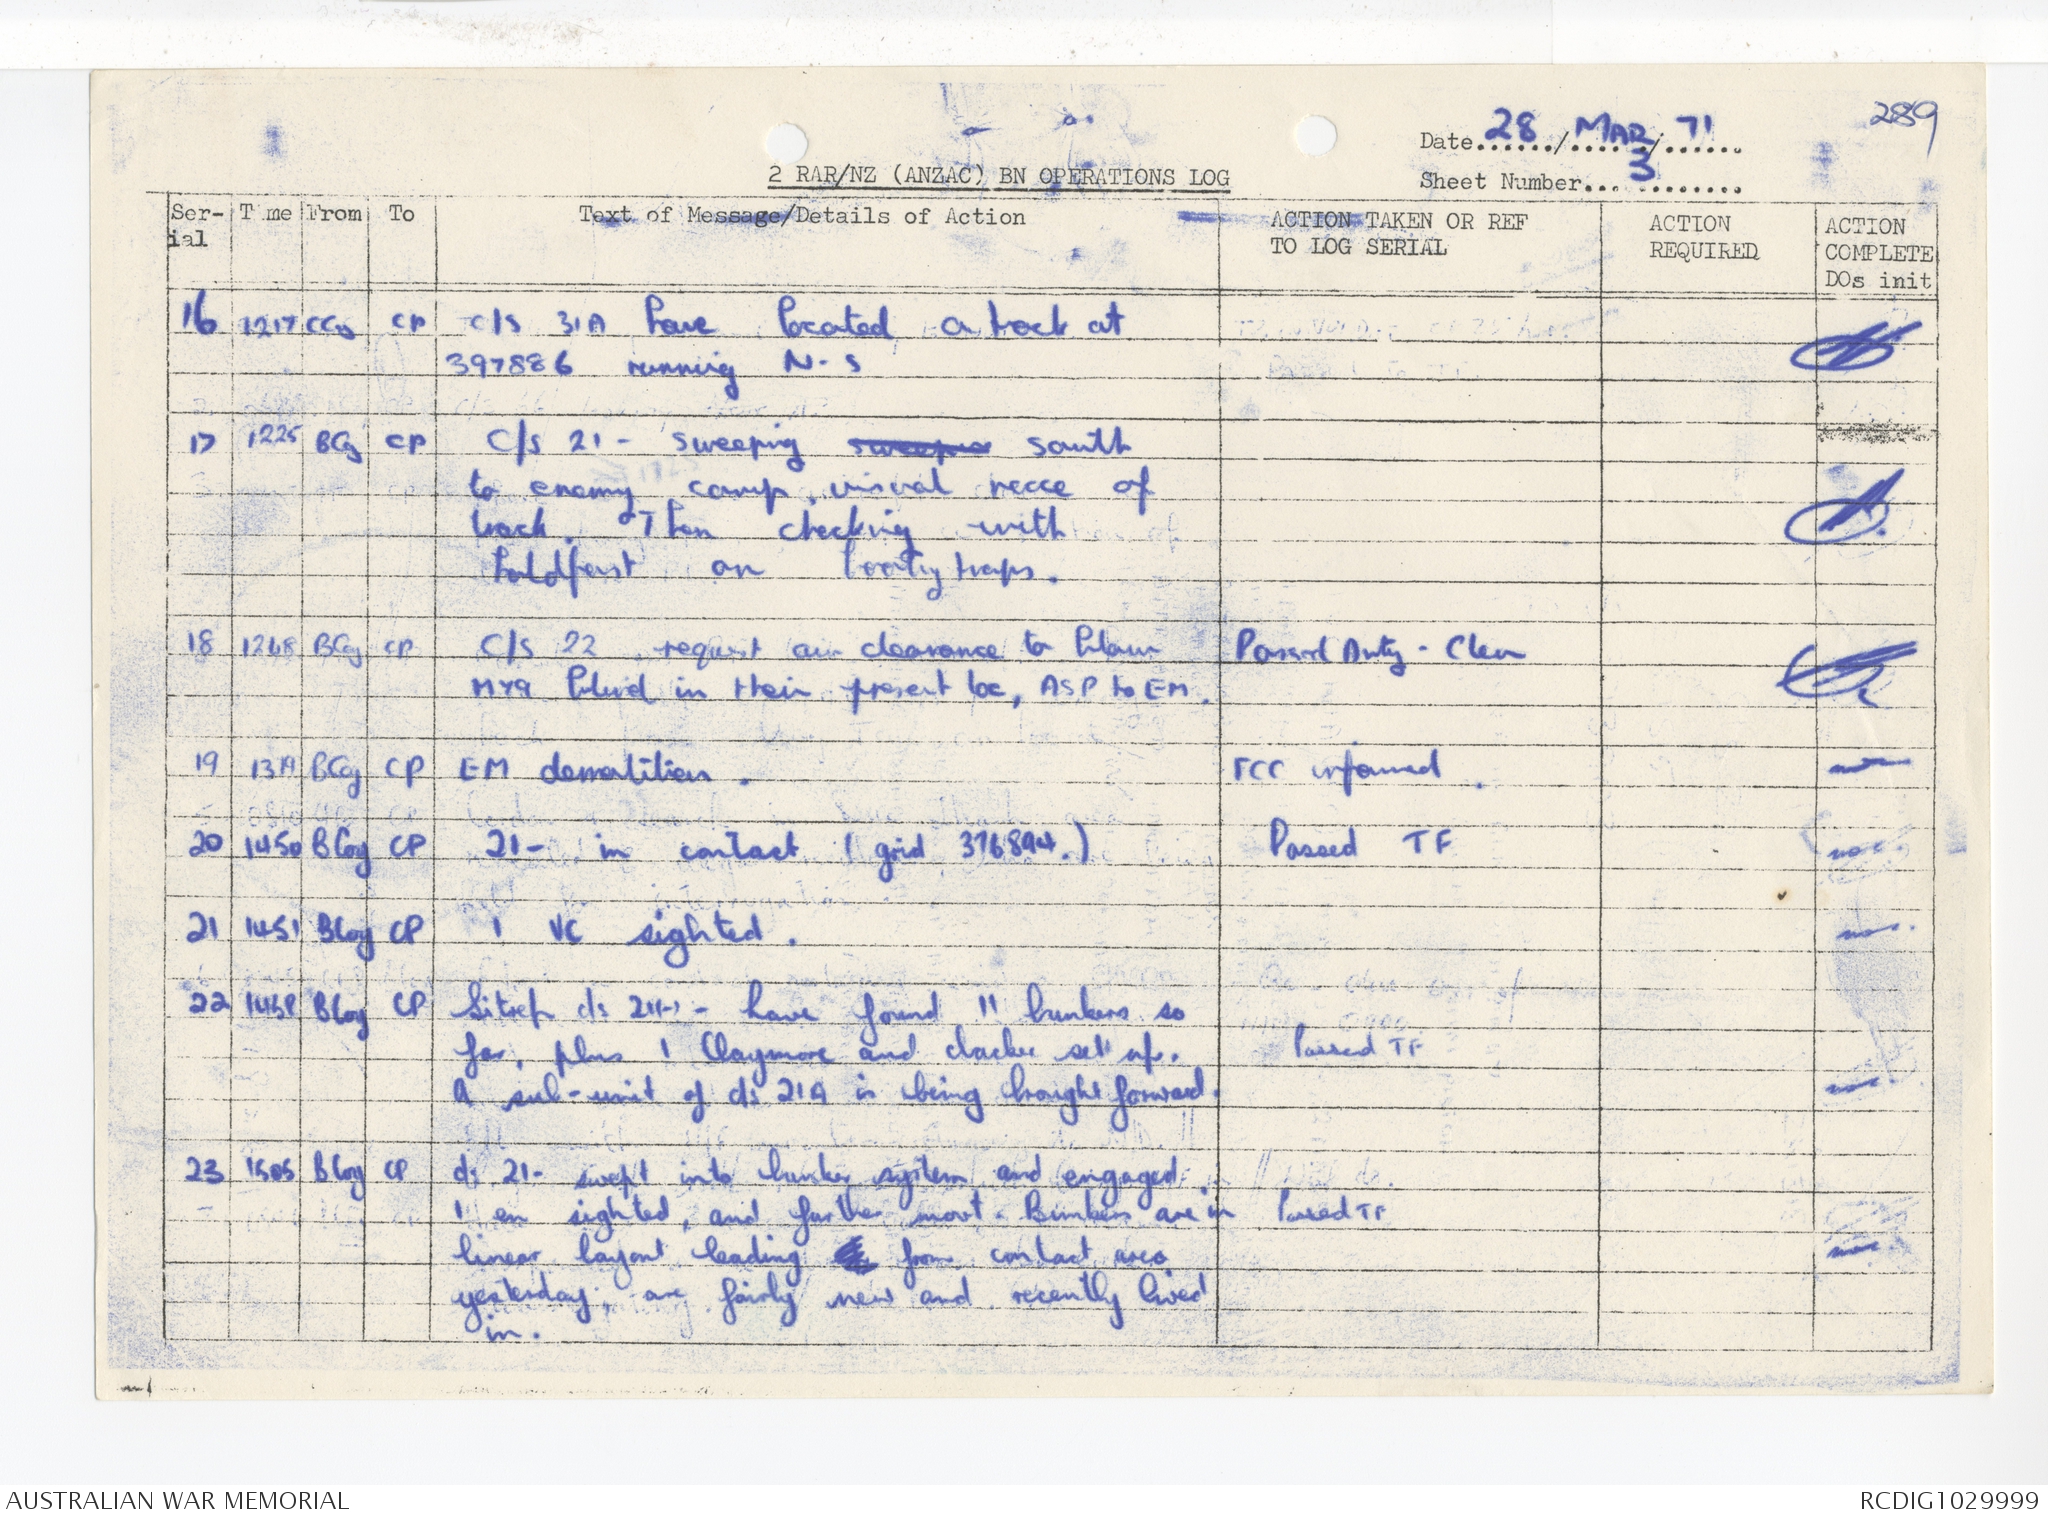 289
Date 28 / MAR / 71
Sheet Number 3
2 RAR/NZ (ANZAC) BN OPERATIONS LOG
Ser-ial Time From To Text of Message/Details of Action ACTION TAKEN OR REF TO LOG SERIAL ACTION REQUIRED ACTION COMPLETE DOs init
16 1217 CCoy CP c/s 31A have located a track at
397886 running N-S
17 1225 BCoy CP C/S 21- sweeping sweeping south
to enemy camp, visual recce of
track. Then checking with
holdfast on boobytraps.
18 1248 BCoy CP C/S 22 request air clearance to blow
M79 blind in their present loc, ASP to EM. Passed Duty - Clear
19 1319 BCoy CP EM demolition. FCC informed.
20 1450 BCoy CP 21- in contact (grid 376894.) Passed TF
21 1451 BCoy CP 1 VC sighted.
22 1458 BCoy CP Sitrep c/s 21(-) - have found 11 bunkers so
far, plus 1 Claymore and clacker set up. Passed TF
A sub-unit of c/s 21A is being brought forward.
23 1505 BCoy CP c/s 21- swept into bunker system and engaged
1 en sighted, and further movt. Bunkers are in Passed TF
linear layout leading from contact area
yesterday, are fairly new and recently lived
in.
AUSTRALIAN WAR MEMORIAL
RCDIG1029999